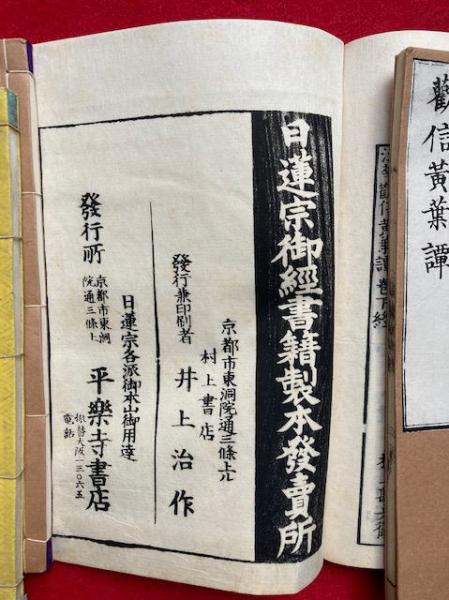 勸信黃葉譚
日蓮宗御經書籍製本發賣所
京都市東洞院通三條上ル
村上書店
發行兼印刷者 井上治作
日蓮宗各派御本山御用達
發行所
京都市東洞
院通三條上
平樂寺書店
振替大阪一三〇六五
電話